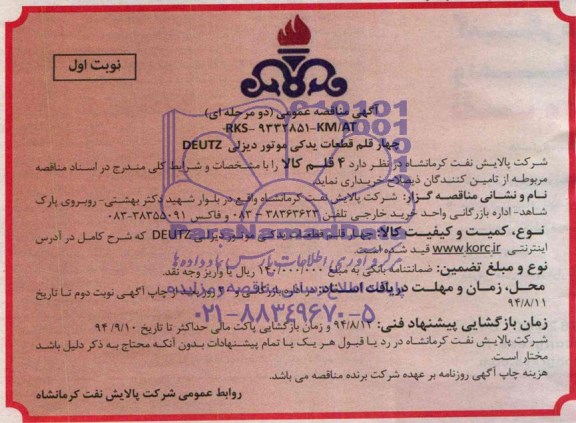 نوبت اول
آگهی مناقصه عمومی (دو مرحله ای)
RKS- ۹۳۳۲۸۵۱-KM/AT
چهار قلم قطعات یدکی موتور دیزلی DEUTZ
شرکت پالایش نفت کرمانشاه در نظر دارد ۴ قلم کالا را با مشخصات و شرایط کلی مندرج در اسناد مناقصه
مربوطه از تامین کنندگان ذیصلاح خریداری نماید.
نام و نشانی مناقصه گزار: شرکت پالایش نفت کرمانشاه واقع در بلوار شهید دکتر بهشتی- روبروی پارک
شاهد- اداره بازرگانی واحد خرید خارجی تلفن ۳۸۳۶۳۶۲۳ - ۰۸۳ و فاکس ۳۸۳۵۵۰۹۱-۰۸۳
نوع، کمیت و کیفیت کالا: چهار قلم قطعات یدکی موتور دیزلی DEUTZ که شرح کامل در آدرس
اینترنتی www.korc.ir قید شده است.
نوع و مبلغ تضمین: ضمانتنامه بانکی به مبلغ ۱۴۰/۰۰۰/۰۰۰ ریال یا واریز وجه نقد.
محل، زمان و مهلت دریافت اسناد: روز پس از چاپ آگهی نوبت دوم تا تاریخ
۹۴/۸/۱۱
زمان بازگشایی پیشنهاد فنی: ۹۴/۸/۱۲ و زمان بازگشایی پاکت مالی حداکثر تا تاریخ ۹۴/۹/۱۰
شرکت پالایش نفت کرمانشاه در رد یا قبول هر یک یا تمام پیشنهادات بدون آنکه محتاج به ذکر دلیل باشد
مختار است.
هزینه چاپ آگهی روزنامه بر عهده شرکت برنده مناقصه می باشد.
روابط عمومی شرکت پالایش نفت کرمانشاه
ParsNamadData
مرکز فرآوری اطلاعات پارس نماد داده ها
۰۲۱-۸۸۳۴۹۶۷۰-۵